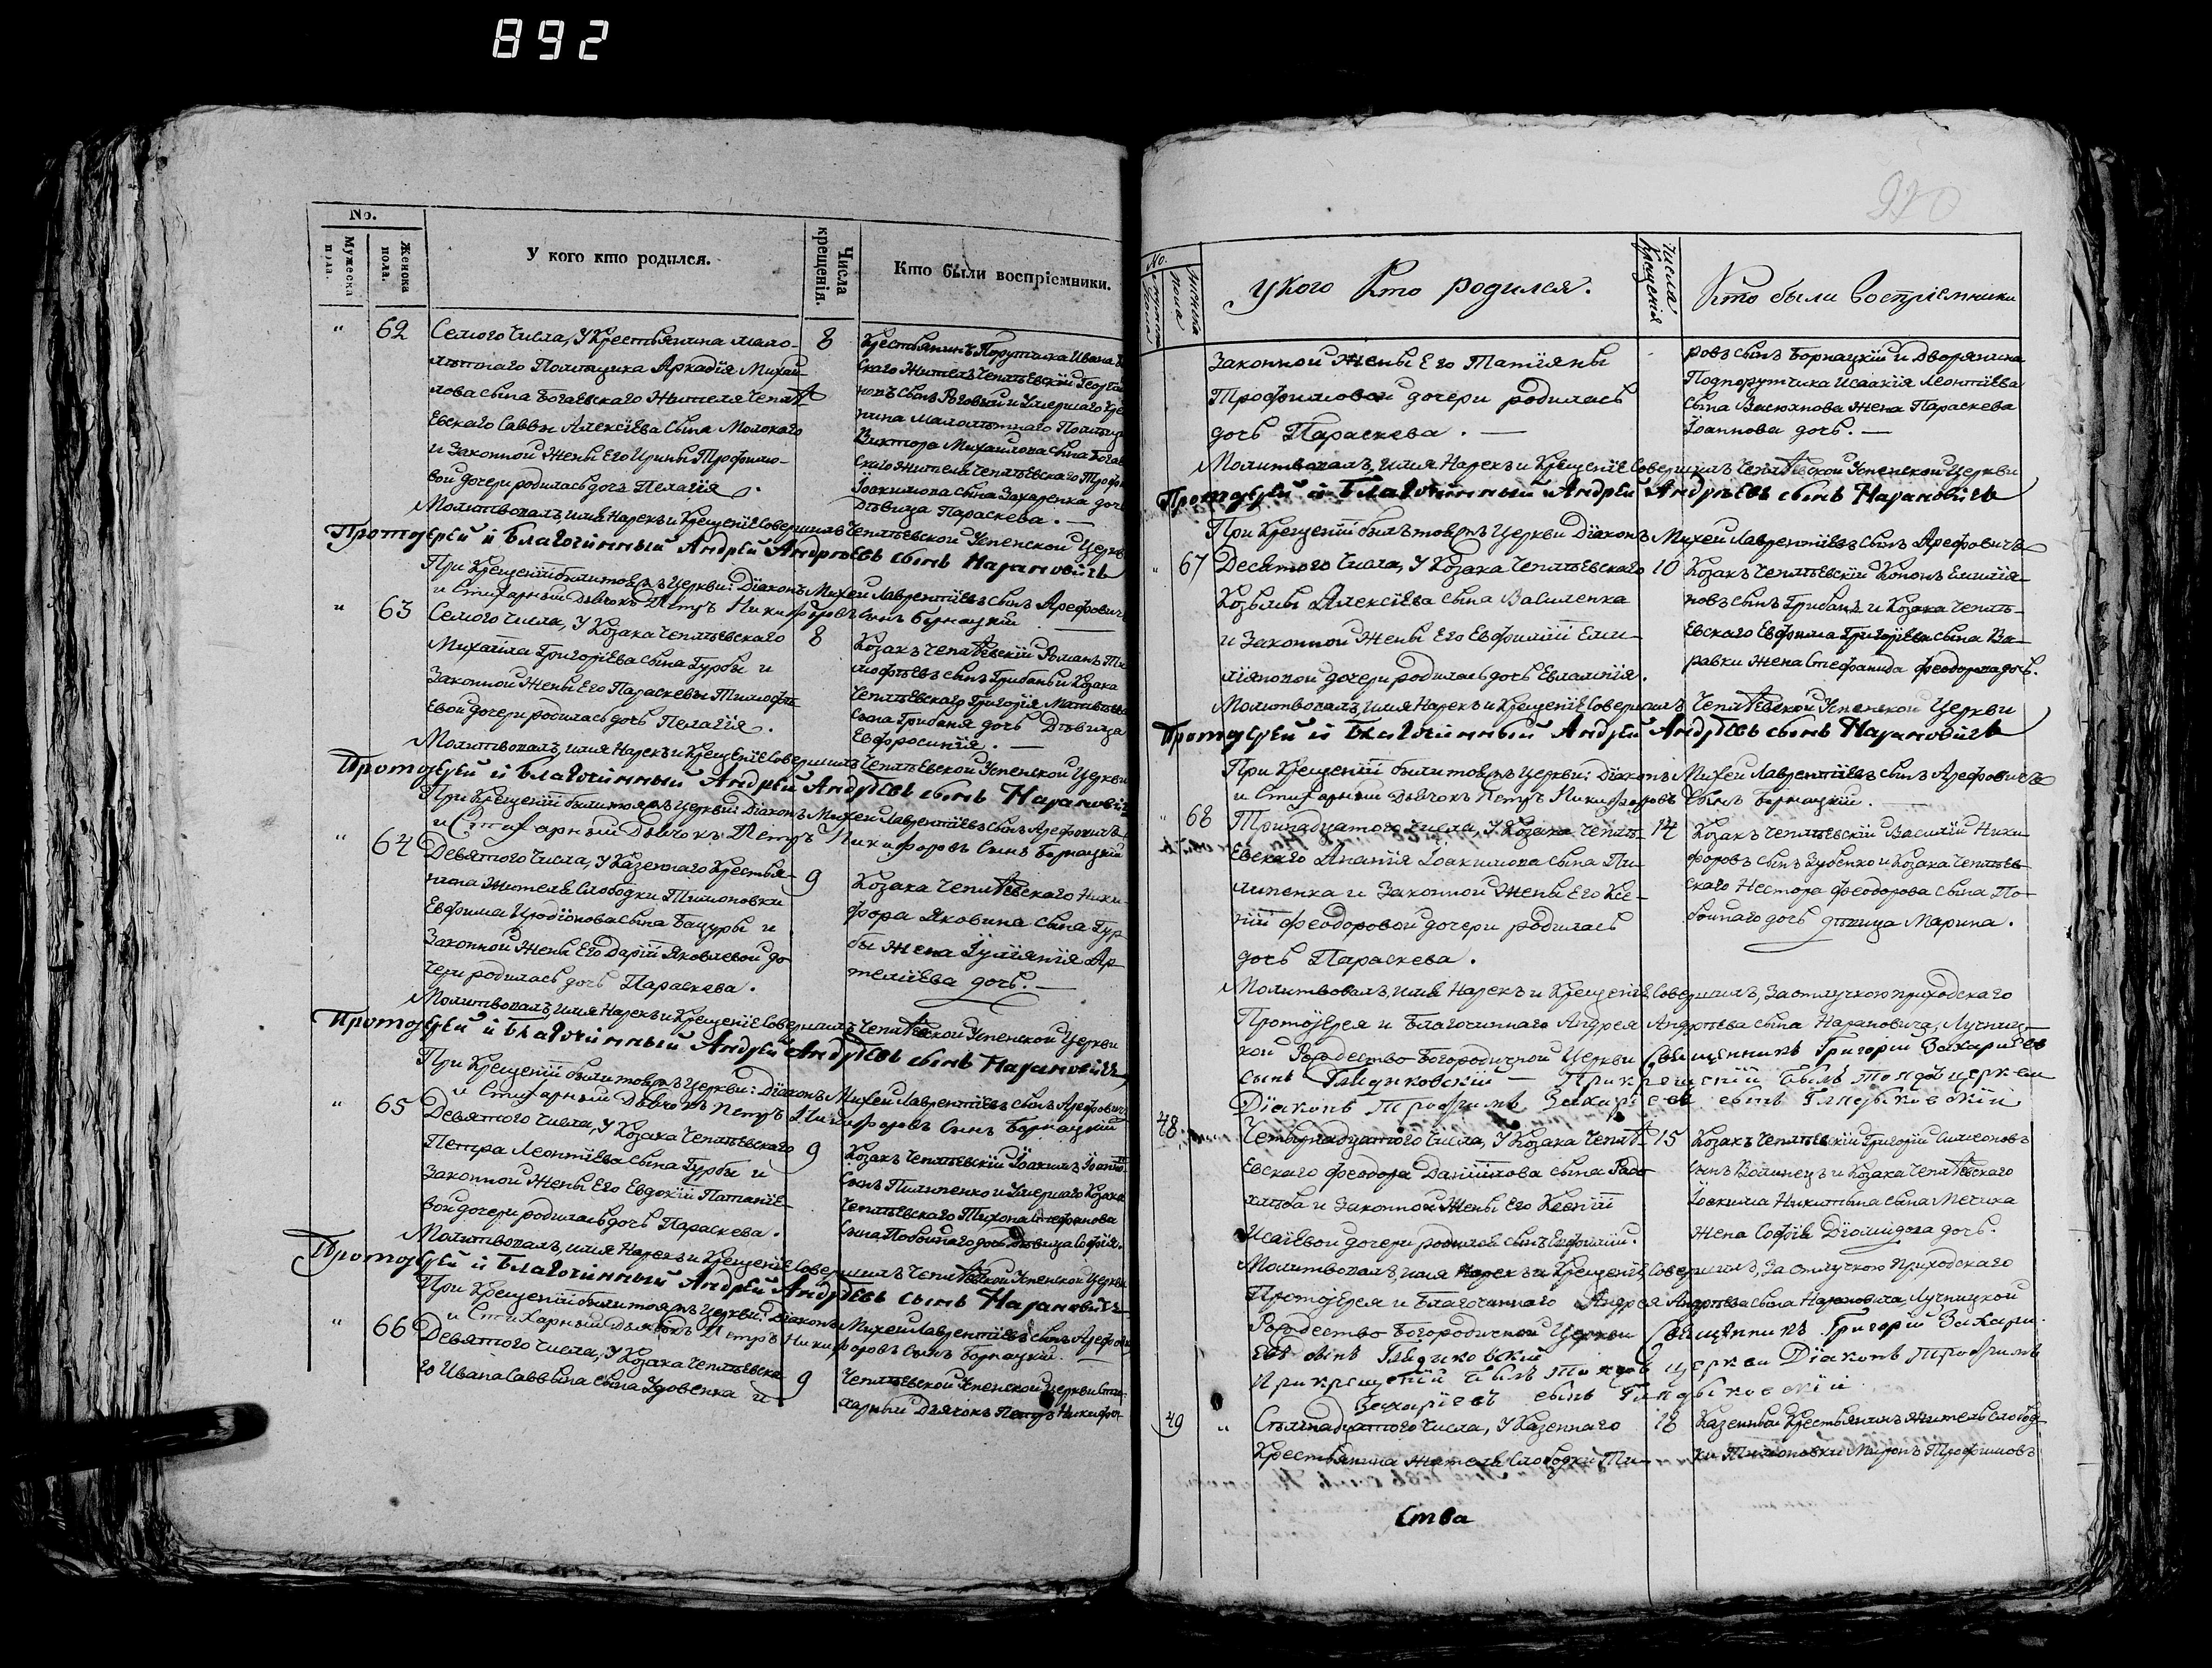 892
No.
Мужеска пола.
Женска пола.
У кого кто родился.
Числа крещенія.
Кто были воспріемники.
" 62
Семого Числа, У Крестьянина мало-
лѣтнаго Помѣщика Аркадія Михаи-
лова сына Богаевскаго Жителя Чепѣ-
Евскаго Саввы Алексіева сына Молокаго
и Законной Жены Его Ирины Трофимо-
вой дочери родилась дочь Пелагія.
8
Крестьянинъ Порутчика Ивана
скаго Житель Чепѣевскій Георгій
новъ сынъ Роговый и Умершаго
нина малолѣтнаго Помѣщи
Виктора Михаилова сына Богае
скаго Жителя Чепѣевскаго Трофи
Іоакимова сына Захаренка доч
дѣвица Параскева.
Молитвовалъ, имя Нарекъ и Крещеніе Совершилъ Чепѣевской Успенской Церкв
Протоіерей и Благочинный Андрей Андреевъ сынъ Нарановичъ
При Крещеніи были тояжъ Церкви: Діаконъ Михей Лаврентіевъ сынъ Арефович
и Стихарный Дьячокъ Петръ Никифоровъ сынъ Борнацкій
" 63
Семого Числа, У Козака Чепѣевскаго
Михаила Григоріева сына Гурбы и
Законной Жены Его Параскевы Тимофѣ-
Евой дочери родилась дочь Пелагія.
8
Козакъ Чепѣевскій Романъ Ти
мофѣевъ сынъ Грибань и Козака
Чепѣевскаго Григорія Матвѣева
сына Грибаня дочь Дѣвица
Евфросинія.
Молитвовалъ, имя Нарекъ и Крещеніе Совершилъ Чепѣевской Успенской Церкви
Протоіерей и Благочинный Андрей Андреевъ сынъ Нарановичъ
При Крещеніи были тояжъ Церкви: Діаконъ Михей Лаврентіевъ сынъ Арефовичъ
и Стихарный Дьячокъ Петръ Никифоровъ Сынъ Борнацкій
" 64
Девятого Числа, У Казеннаго Крестья-
нина Жителя Слободки Тимоновки
Евфима Иродіонова сына Бацуры и
Законной Жены Его Даріи Яковлевой до-
чери родилась дочь Параскева.
9
Козака Чепѣевскаго Ники-
фора Яковина сына Гур-
бы Жена Іуліянія Ар-
темиева дочь.
Молитвовалъ, имя Нарекъ и Крещеніе Совершилъ Чепѣевской Успенской Церкви
Протоіерей и Благочинный Андрей Андреевъ сынъ Нарановичъ
При Крещеніи были тояжъ Церкви: Діаконъ Михей Лаврентіевъ сынъ Арефович
и Стихарный Дьячокъ Петръ Никифоровъ Сынъ Борнацкій
" 65
Девятого Числа, У Козака Чепѣевскаго
Петра Леонтіева сына Гурбы и
Законной Жены Его Евдокіи Патапіе-
вой дочери родилась дочь Параскева.
9
Козакъ Чепѣевскій Іоакимъ Іоаннов
Сынъ Пилипенко и Умершаго Козака
Чепѣевскаго Тихона Стефанова
сына Побойнаго дочь Дѣвица Софія.
Молитвовалъ, имя Нарекъ и Крещеніе Совершилъ Чепѣевской Успенской Церкви
Протоіерей и Благочинный Андрей Андреевъ сынъ Нарановичъ
При Крещеніи были тояжъ Церкви: Діаконъ Михей Лаврентіевъ сынъ Арефови
и Стихарный Дьячокъ Петръ Никифоровъ Сынъ Борнацкій.
" 66
Девятого Числа, У Козака Чепѣевска-
го Ивана Саввина сына Удовенка и
9
Чепѣевской Успенской Церкви Сти-
харный Дьячокъ Петръ Никифо-
No.
У кого Кто родился.
Числа Крещенія
Кто были Воспріемники
Законной Жены Его Татіяны
Трофимовой дочери родилась
дочь Параскева.
ровъ сынъ Борнацкій и Дворянина
Подпорутчика Исаакія Леонтіева
сына Васюхнова Жена Параскева
Іоаннова дочь.
Молитвовалъ, имя Нарекъ и Крещеніе Совершилъ Чепѣевской Успенской Церкви
Протоіерей и Благочинный Андрей Андреевъ сынъ Нарановичъ
При Крещеніи былъ тояжъ Церкви Діаконъ Михей Лаврентіевъ сынъ Арефовичъ
" 67
Десятого Числа, У Козака Чепѣевскаго
Козьмы Алексіева сына Василенка
и Законной Жены Его Евфиміи Еми-
ліяновой дочери родилась дочь Евлампія.
10
Козакъ Чепѣевскій Кононъ Емилія-
новъ сынъ Грибань и Козака Чепѣ-
Евскаго Евфима Григоріева сына Ва-
равки Жена Стефанида Феодорова дочь.
Молитвовалъ, имя Нарекъ и Крещеніе Совершилъ Чепѣевской Успенской Церкви
Протоіерей и Благочинный Андрей Андреевъ сынъ Нарановичъ
При Крещеніи были тояжъ Церкви: Діаконъ Михей Лаврентіевъ сынъ Арефовичъ
и Стихарный Дьячокъ Петръ Никифоровъ Сынъ Борнацкій.
" 68
Тринадцатого Числа, У Козака Чепѣ-
Евскаго Ананія Іоакимова сына Пи-
липенка и Законной Жены Его Ксе-
ніи Феодоровой дочери родилась
дочь Параскева.
14
Козакъ Чепѣевскій Василій Ники-
форовъ сынъ Зубенко и Козака Чепѣев-
скаго Нестора Феодорова сына По-
бойнаго дочь дѣвица Марина.
Молитвовалъ, имя Нарекъ и Крещеніе Совершилъ, За отлучкою приходскаго
Протоіерея и Благочиннаго Андрея Андреева сына Нарановича, Лучниц-
кой Рождество Богородичной Церкви Священникъ Григорій Захаріевъ
сынъ Гладиковскій — При крещеніи былъ тоядъ церкви
Діаконъ Трофимъ Захаріевъ сынъ
48
Четырнадцатого Числа, У Козака Чепѣ-
Евскаго Феодора Даніилова сына Радо
и Законной Жены Его Ксеніи
Исаіевой дочери родился сынъ Евфимій.
15
Козакъ Чепѣевскій Григорій Симеоновъ
сынъ Волинецъ и Козака Чепѣевскаго
Іоакима Никитина сына Мечика
Жена Софія Діомидова дочь.
Молитвовалъ, имя Нарекъ и Крещеніе Совершилъ, За отлучкою Приходскаго
Протоіерея и Благочиннаго Андрея Андреева сына Нарановича, Лучницкой
Рождество Богородичной Церкви Священникъ Григорій Захарі-
евъ сынъ
При крещеніи былъ тоядъ церкви Діаконъ Трофимъ
Захаріевъ сынъ
49 "
Семнадцатого Числа, У Казеннаго
Крестьянина Жителя Слободки Ти-
18
Казенный Крестьянинъ Житель Слобод-
ки Тимоновки Миронъ Трофимовъ
Ства